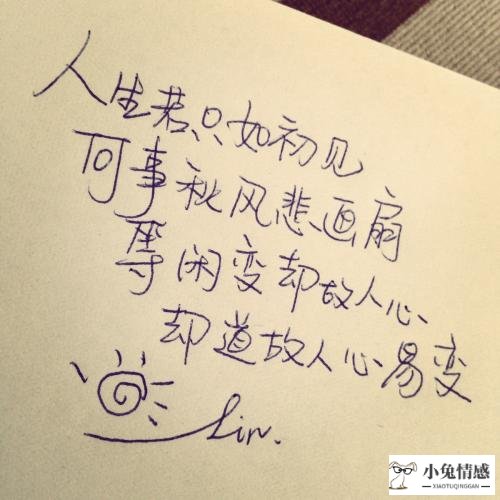 人生若只如初见
何事秋风悲画扇
等闲变却故人心
却道故人心易变
Lin.
小兔情感
XIAOTUQINGGAN